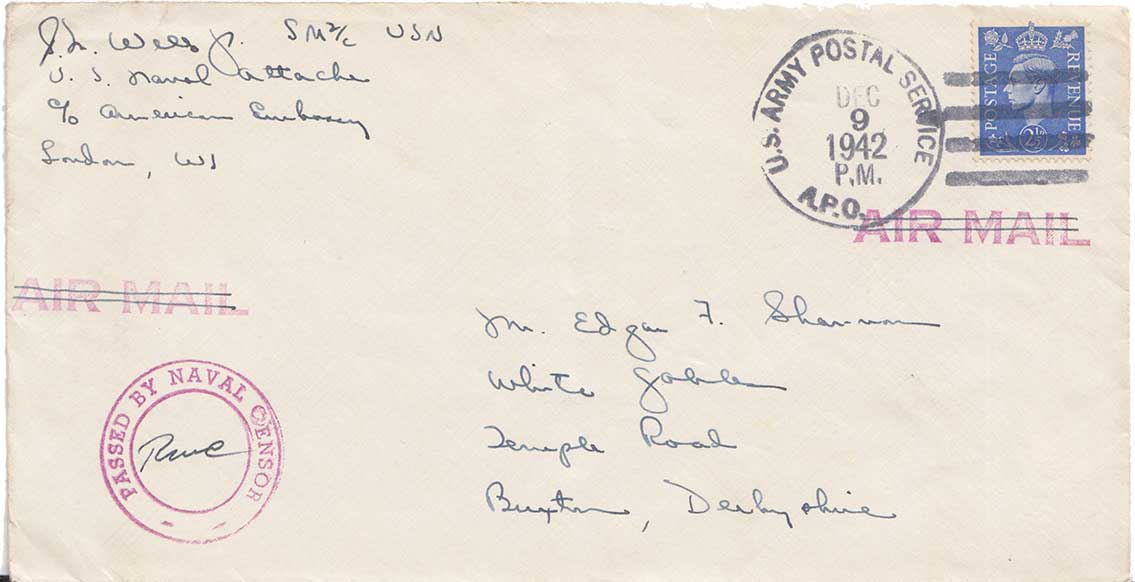 J. M. Wells Jr. SM2/c USN
U. S. Naval Attache
c/o American Embassy
London, W1
U.S. ARMY POSTAL SERVICE
DEC
9
1942
P.M.
A.P.O.
POSTAGE REVENUE
2½
AIR MAIL
AIR MAIL
Mr. Edgar F. Shannon
White Gables
Temple Road
Buxton, Derbyshire
PASSED BY NAVAL CENSOR